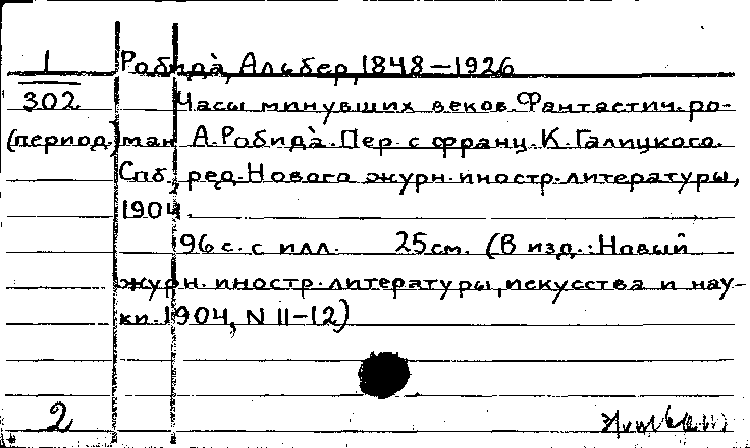 1 Робида̀, Альбер, 1848–1926
302 Часы минувших веков. Фантастич. ро-
(период.) ман А. Робида̀. Пер. с франц. К. Галицкого.
Спб., ред. Нового журн. иностр. литературы,
1904.
96 с. с илл. 25 см. (В изд.: Новый
журн. иностр. литературы, искусства и нау-
ки. 1904, N 11–12)
2